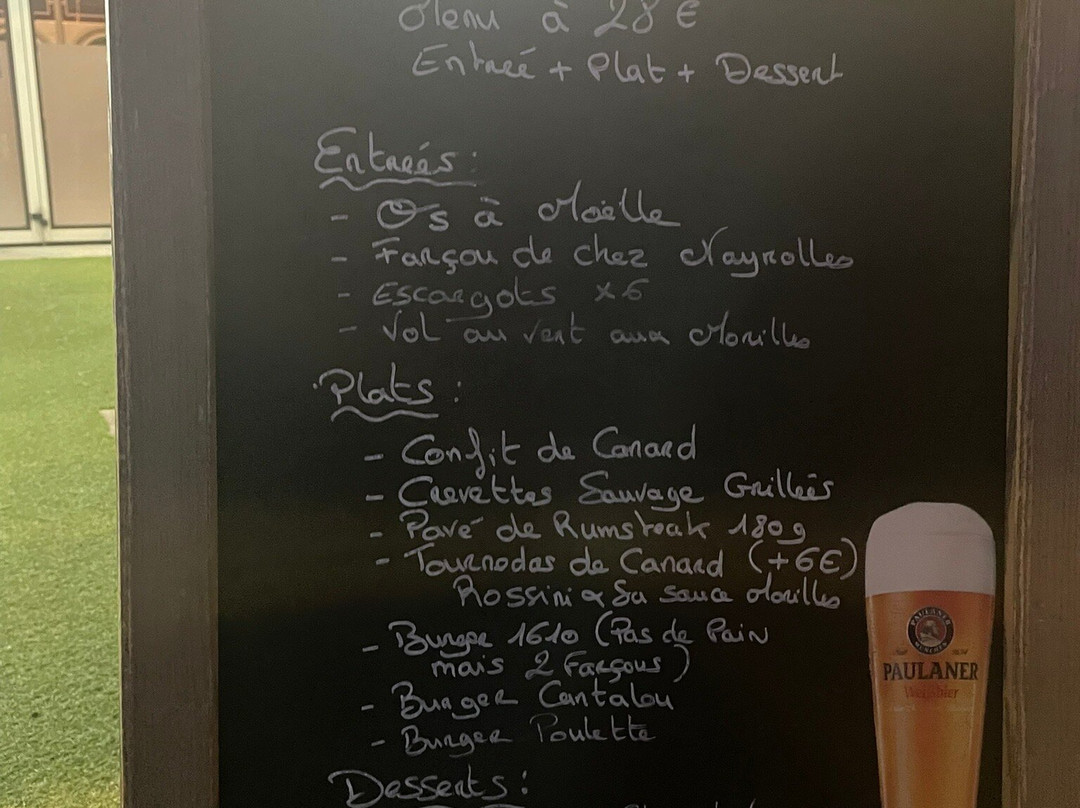 Menu à 28 €
Entreé + Plat + Dessert
Entreés :
- Os à Moëlle
- Farçou de chez Nayrolles
- Escargots x6
- Vol au vent aux Morilles
Plats :
- Confit de Canard
- Crevettes Sauvage Grilleés
- Pavé de Rumsteak 180g
- Tournodas de Canard (+6€)
Rossini & Sa sauce Morilles
- Burger 1610 (Pas de Pain
mais 2 Farçous)
- Burger Cantalou
- Burger Poulette
Desserts :
PAULANER
MÜNCHEN
PAULANER
Weißbier